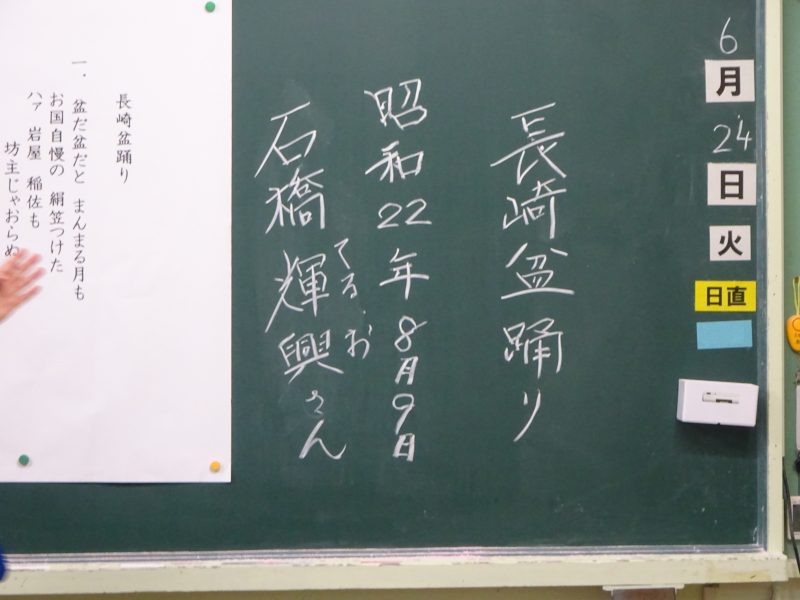 6
月
24
日
火
日直
長崎盆踊り
昭和22年8月9日
石橋輝興さん
てる・お
長崎盆踊り
一．盆だ盆だと まんまる月も
お国自慢の 絹笠つけた
ハァ 岩屋 稲佐も
坊主じゃおらぬ